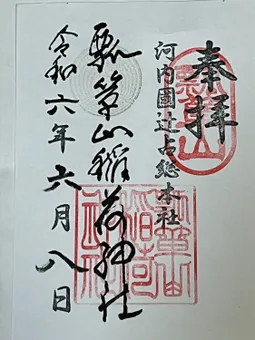 奉拝
河内國辻占総本社
瓢箪山稲荷神社
令和六年六月八日